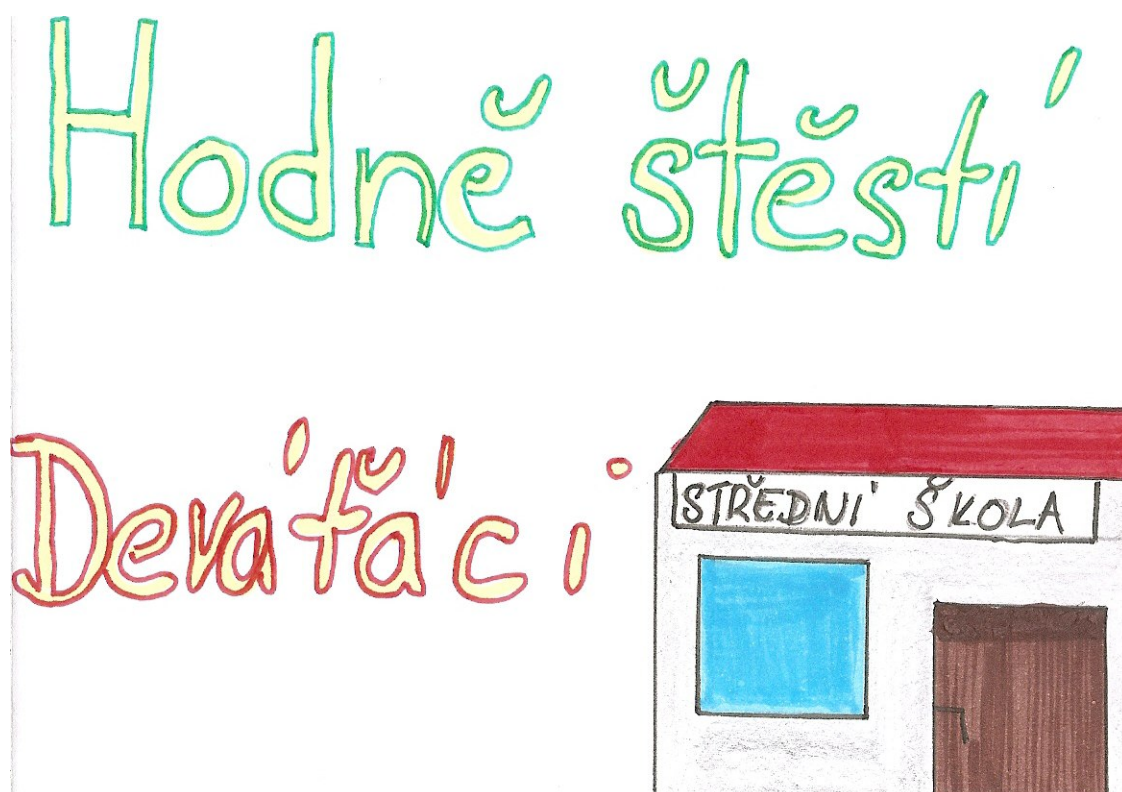 Hodně štěstí
Deváťáci
STŘEDNÍ ŠKOLA